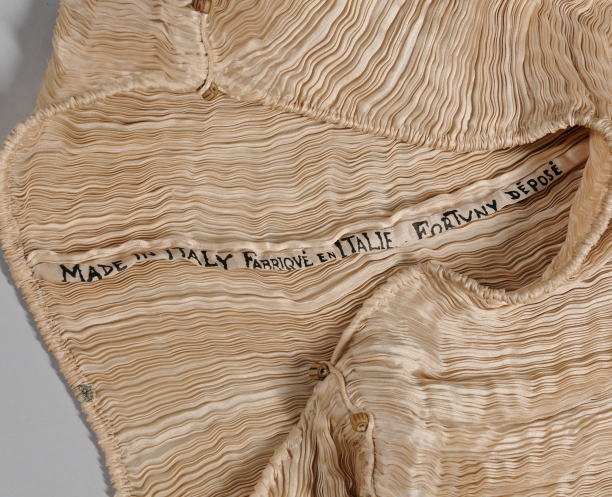 MADE IN ITALY FABRIQUÉ EN ITALIE . FORTUNY DÉPOSÉ